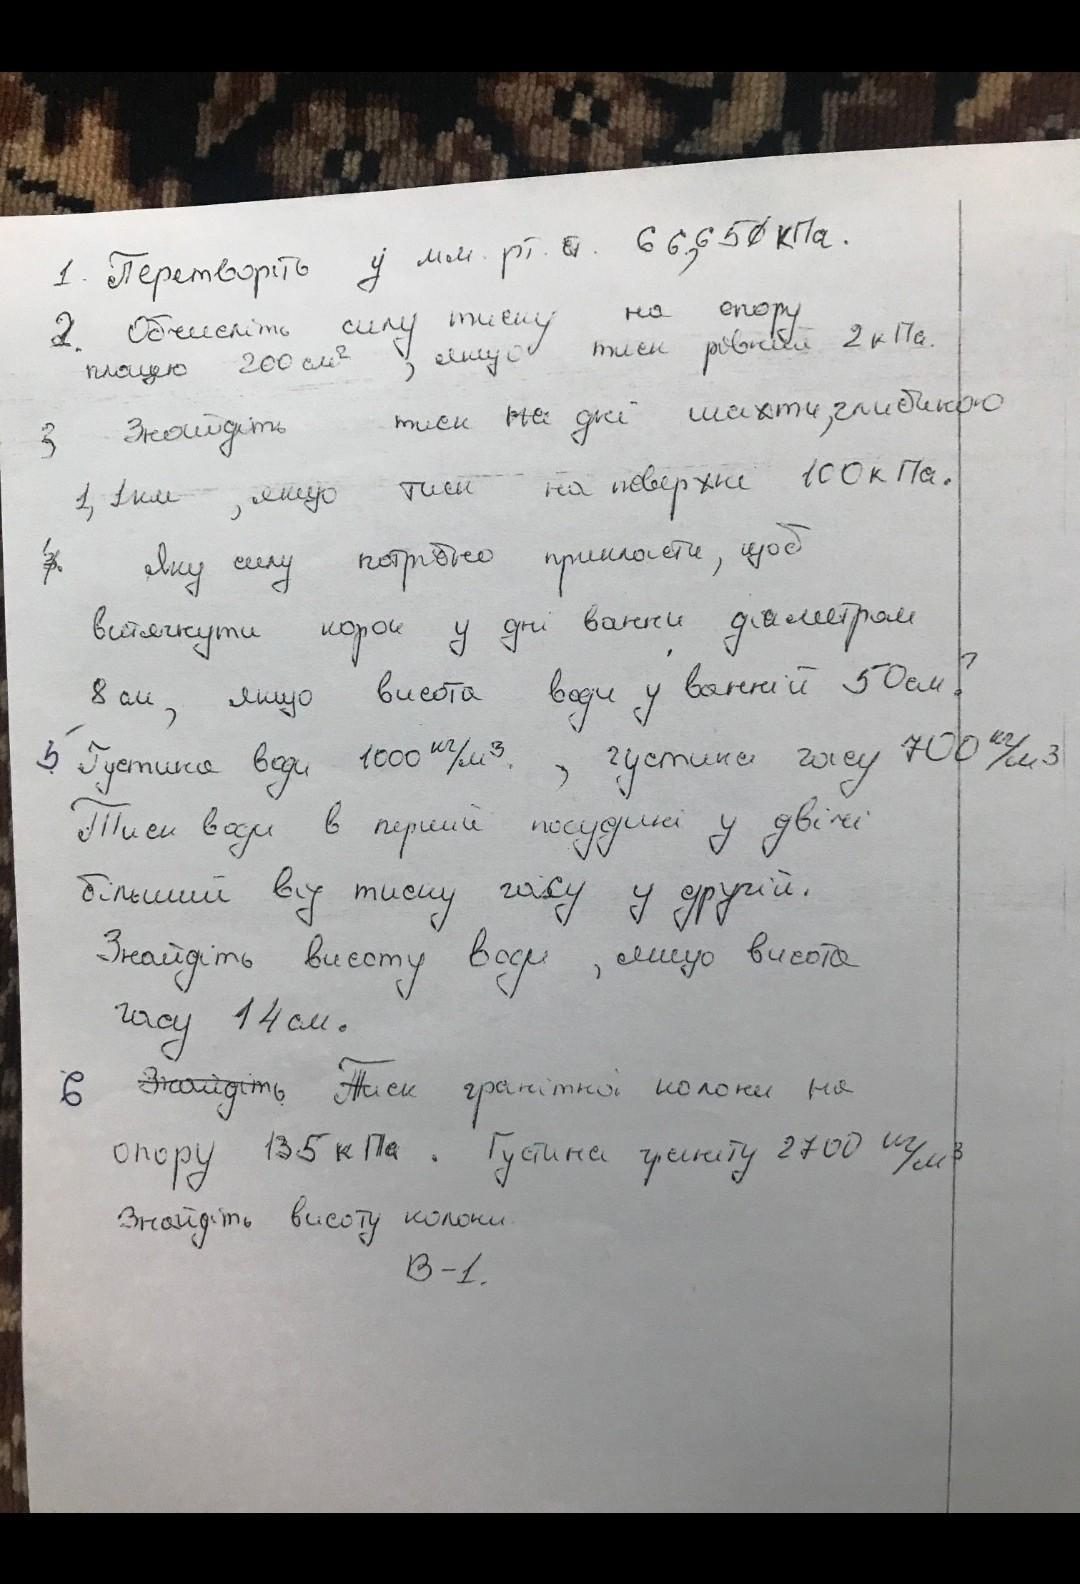 1. Перетворіть у мм. рт. ст. 66,650 кПа.
2. Обчисліть силу тиску на опору
площею 200 см², якщо тиск рівний 2 кПа.
3, Знайдіть тиск на дні шахти, глибиною
1,1 км, якщо тиск на поверхні 100 кПа.
Яку силу потрібно прикласти, щоб
витягнути корок у дні ванни діаметром
8 см, якщо висота води у ванній 50 см?
5 Густина води 1000 кг/м³, густина гасу 700 кг/м³
Тиск води в першій посудині у двічі
більший від тиску гасу у другій.
Знайдіть висоту води, якщо висота
гасу 14 см.
6 Знайдіть Тиск гранітної колони на
опору 135 кПа. Густина граніту 2700 кг/м³
Знайдіть висоту колони
В-1.